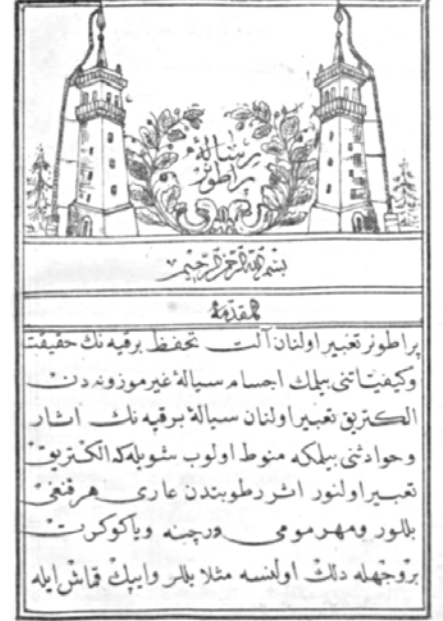 رسالهٔ
پراطونر
بسم الله الرحمن الرحيم
المقدمه
پراطونر تعبير اولنان آلت تحفظ برقيه نك حقيقت
وكيفياتنى بيلمك اجسام سيالهٔ غير موزونه دن
الكتريق تعبير اولنان سيالهٔ برقيه نك اثار
وحوادثنى بيلمكه منوط اولوب شويله كه الكتريق
تعبير اولنور اثر رطوبتدن عارى هرقنغى
بللور ومهر مومى ورچينه وياكوكرت
بروجهله دلك اولنسه مثلا بللر وايپك قماش ايله